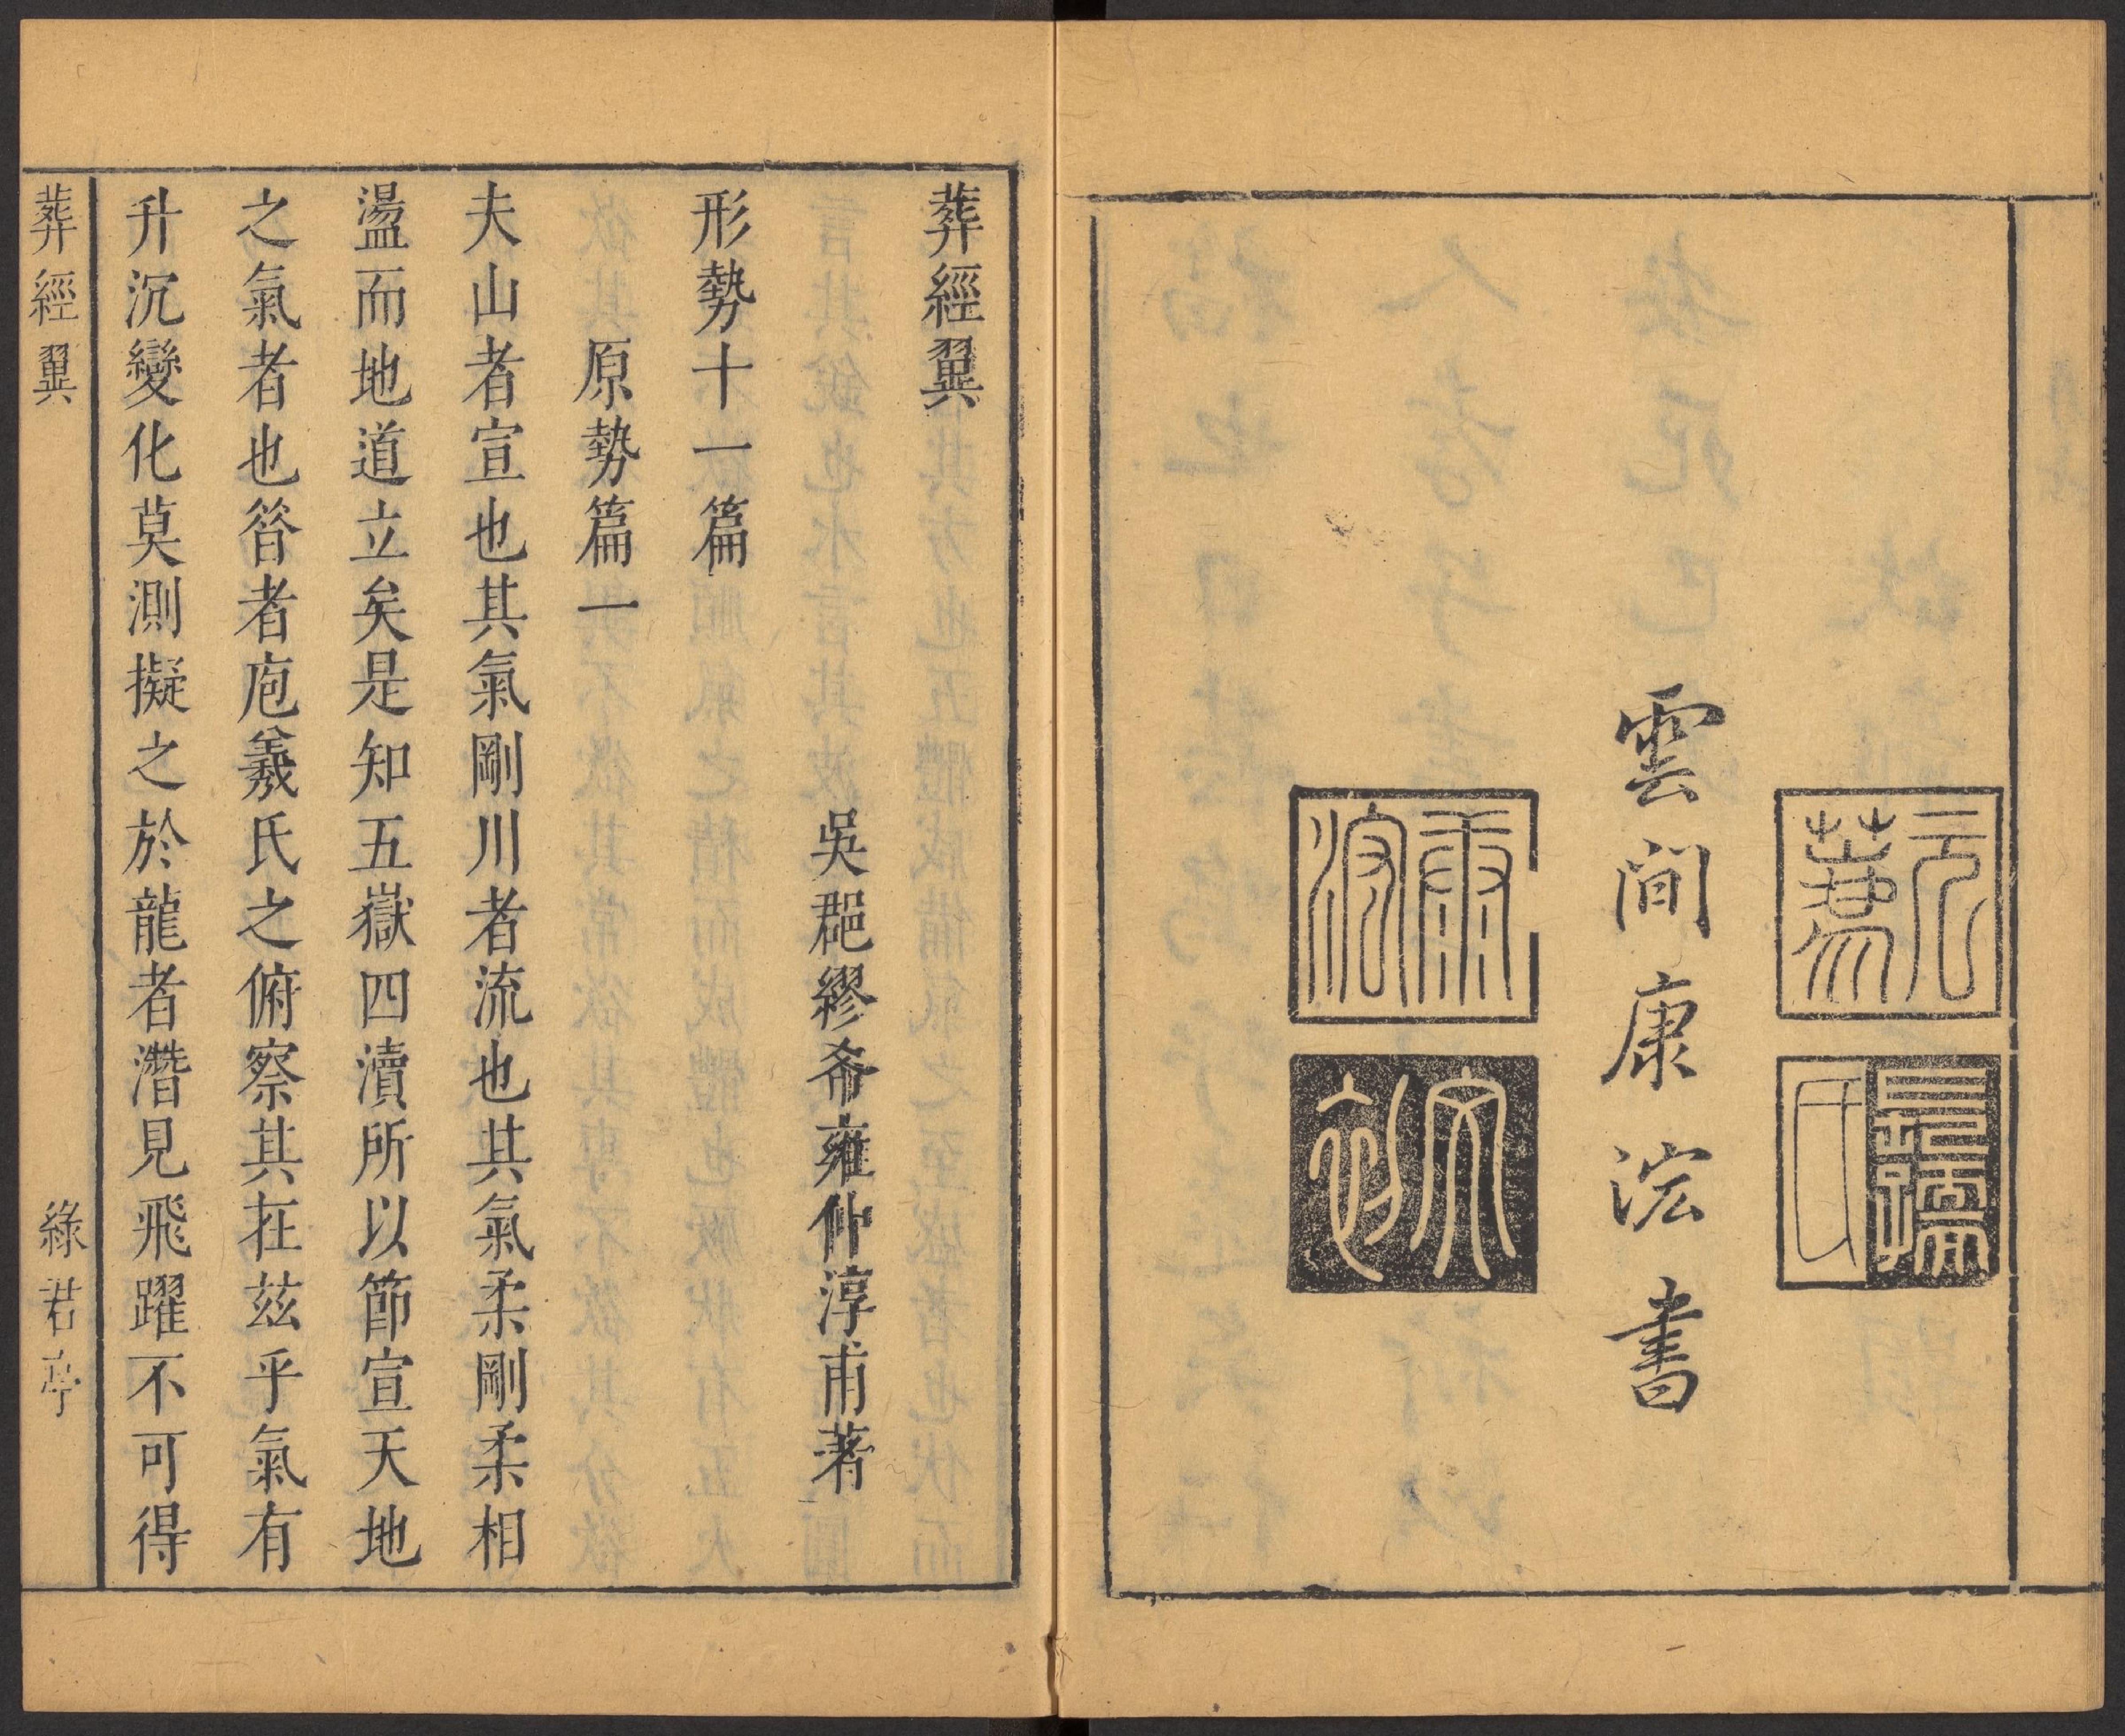 雲間康浤書
葬經翼
吳郡繆希雍仲淳甫著
形勢十一篇
原勢篇一
夫山者宣也其氣剛川者流也其氣柔剛柔相
盪而地道立矣是知五嶽四瀆所以節宣天地
之氣者也昝者庖羲氏之俯察其在茲乎氣有
升沉變化莫測擬之於龍者潛見飛躍不可得
葬經翼
綠君亭